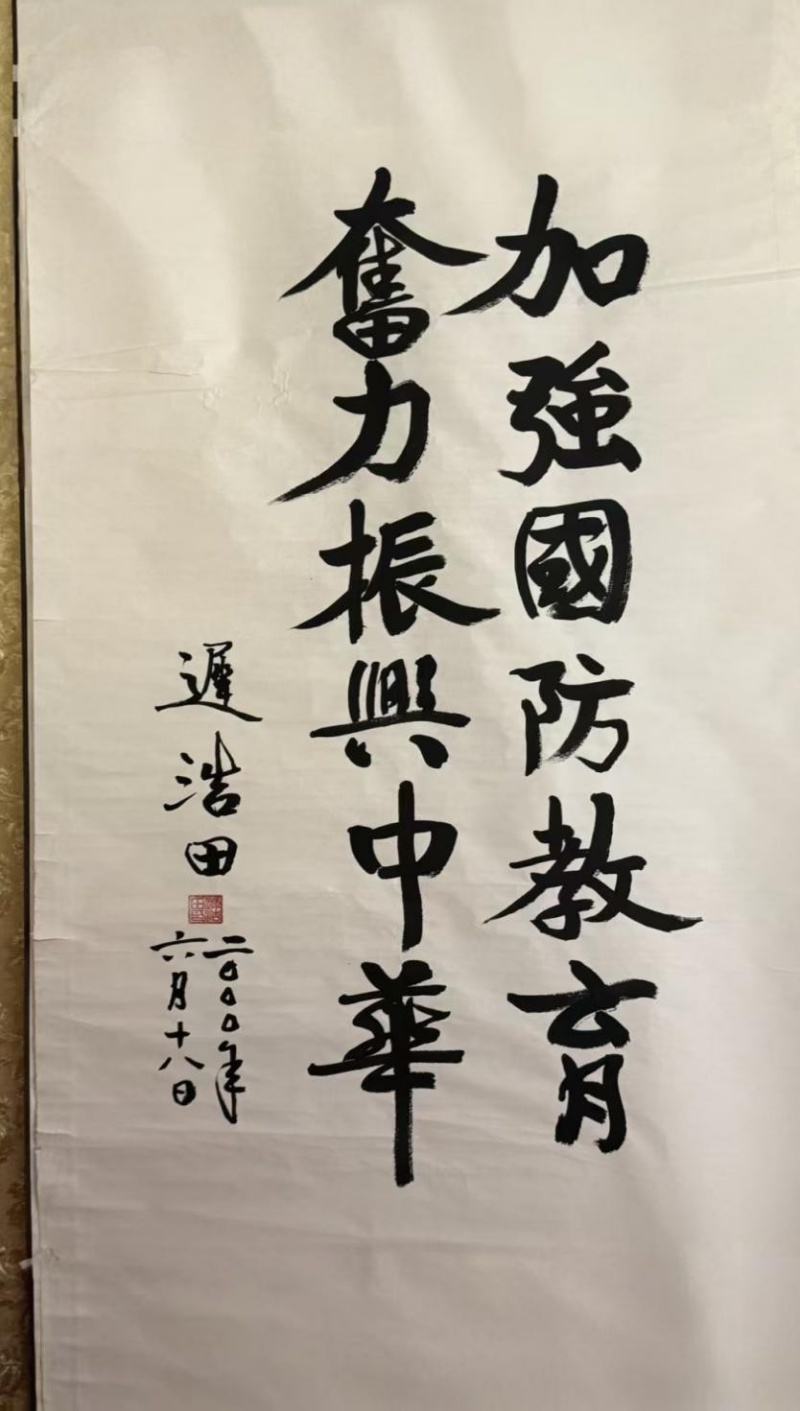 加強國防教育
奮力振興中華
遲浩田
二〇〇〇年
六月十八日